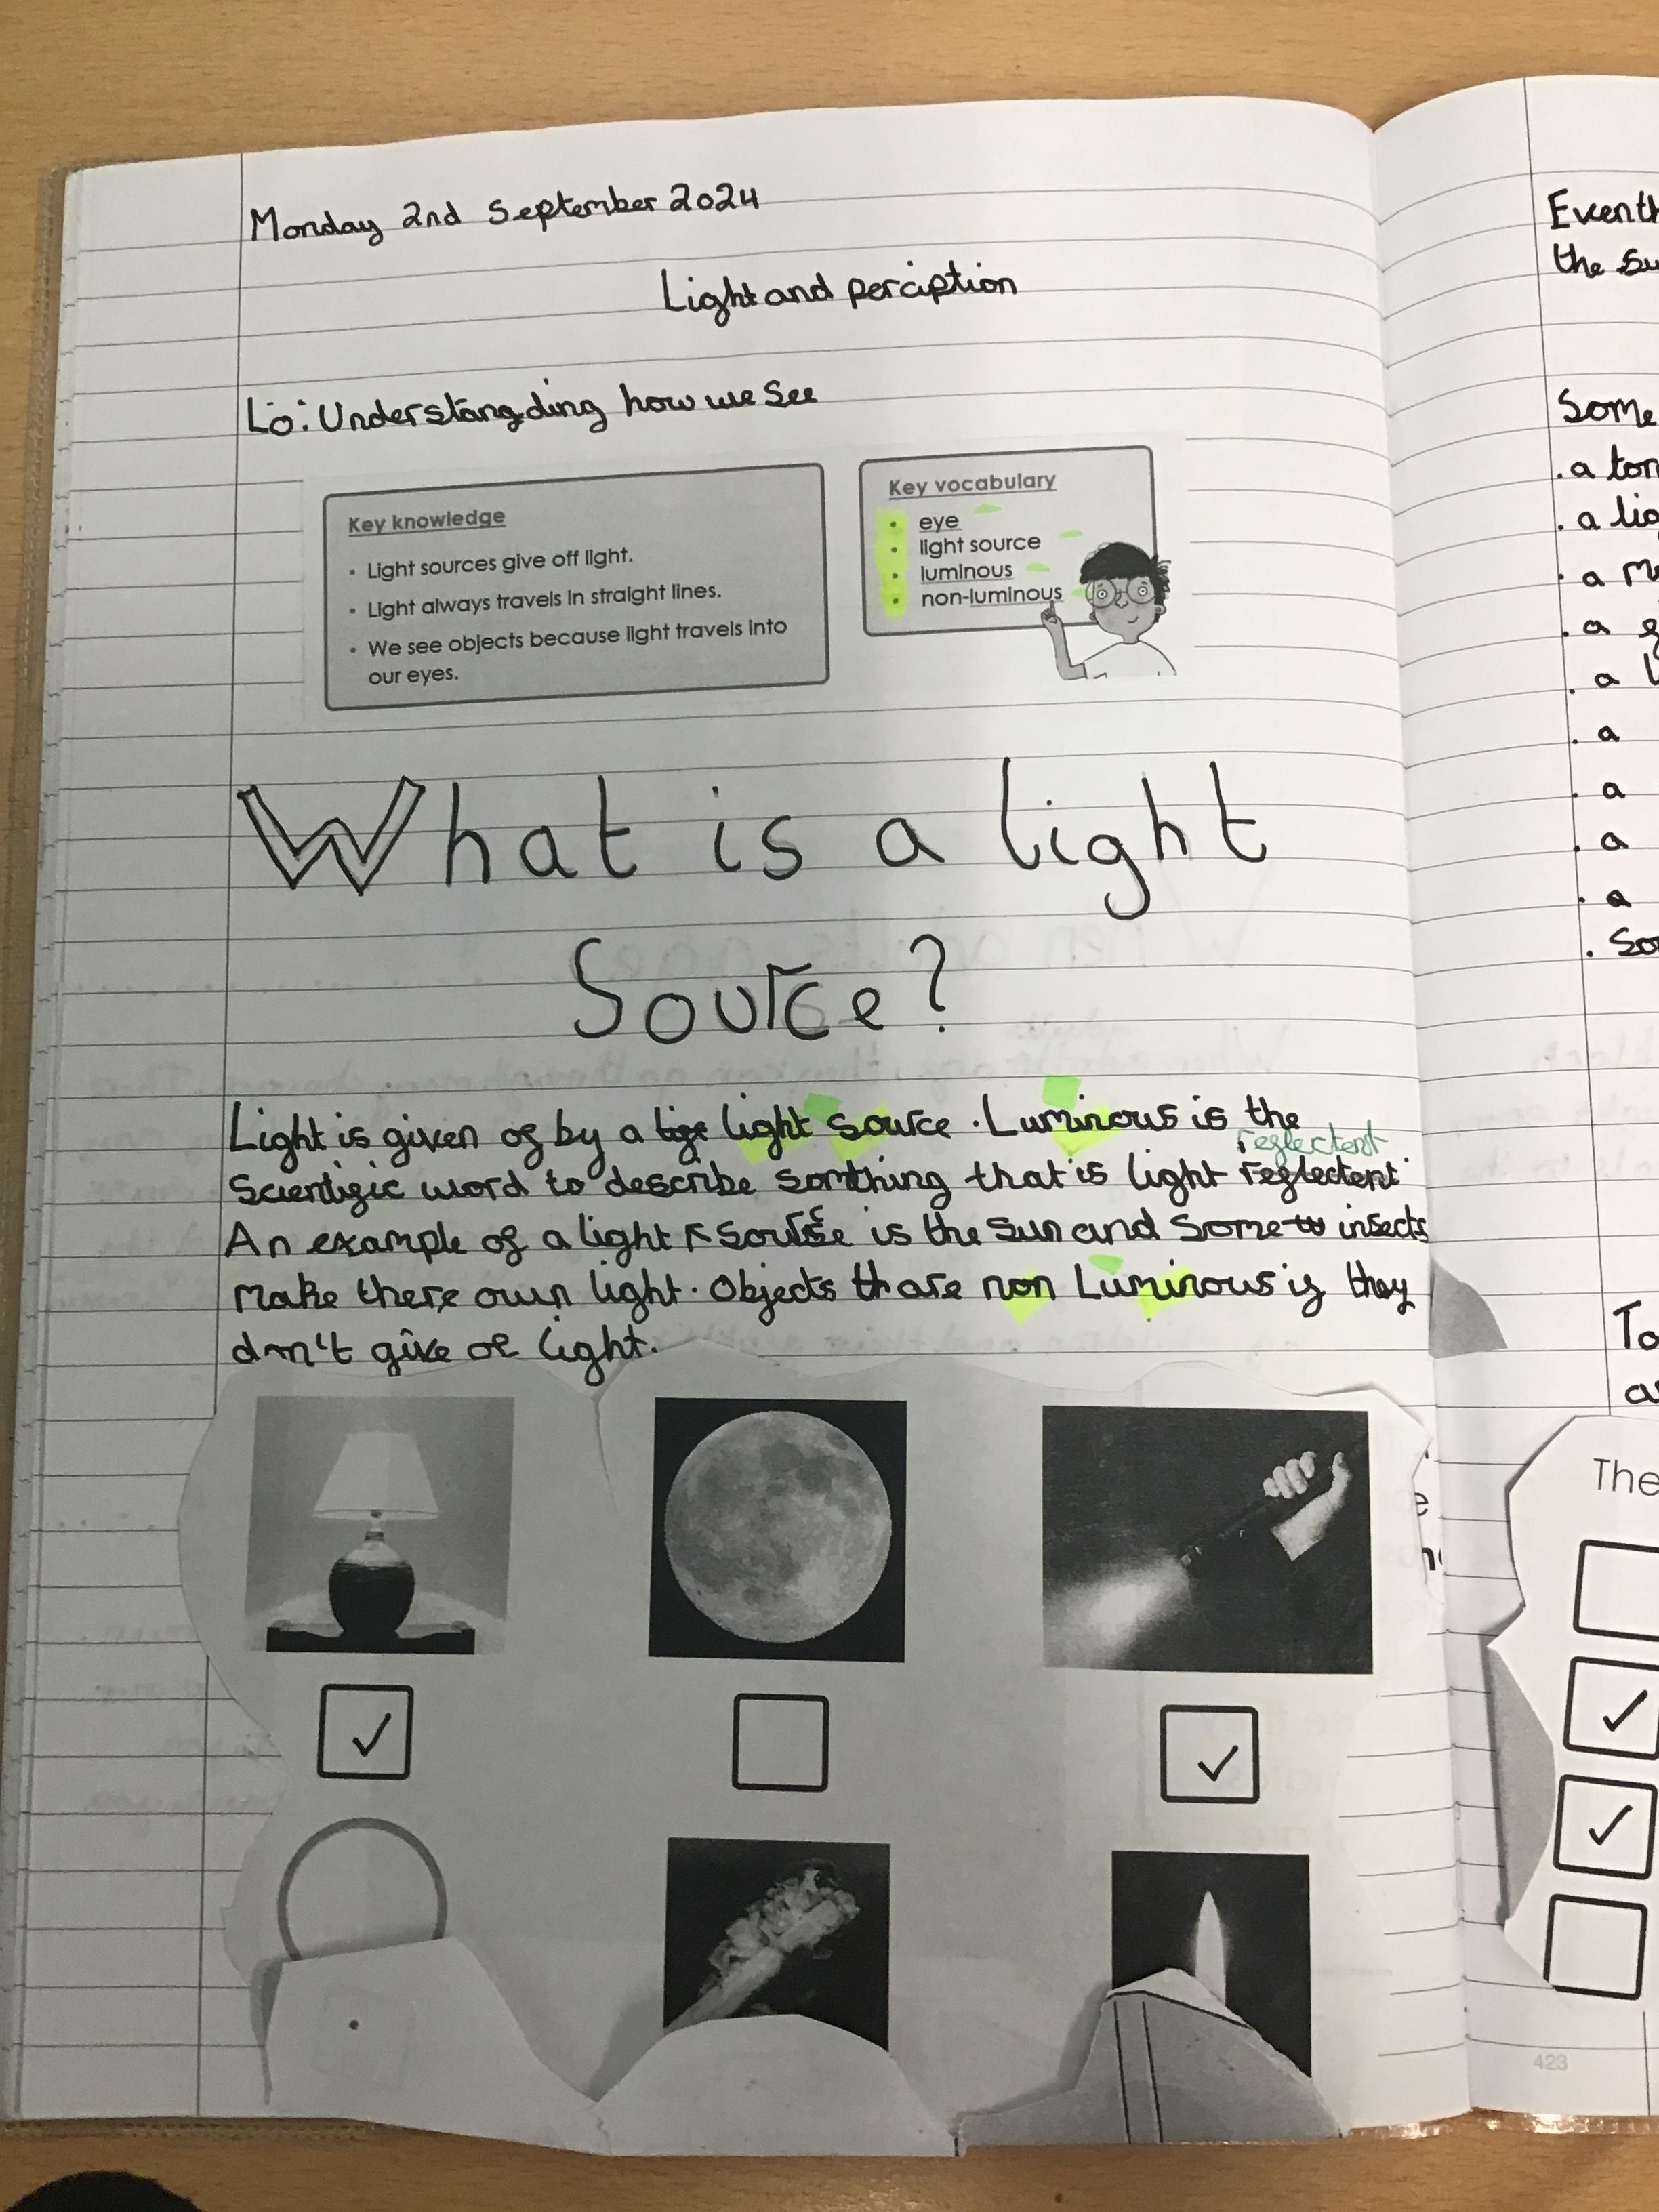 Monday 2nd September 2024
Light and perciption
Lo: Understangding how we See
Key knowledge
• Light sources give off light.
• Light always travels in straight lines.
• We see objects because light travels into
our eyes.
Key vocabulary
• eye
• light source
• luminous
• non-luminous
What is a light
Source?
Light is given of by a light source. Luminous is the
reflectent
Scientific word to describe somthing that is light reflectent
An example of a light source is the sun and some insects
make there own light. Objects th are non Luminous if they
don't give of light.
Eventh
the Su
Some
. a tor
. a lig
. a m
. a
. a l
. a
. a
. a
. a
. So
To
as
The
423